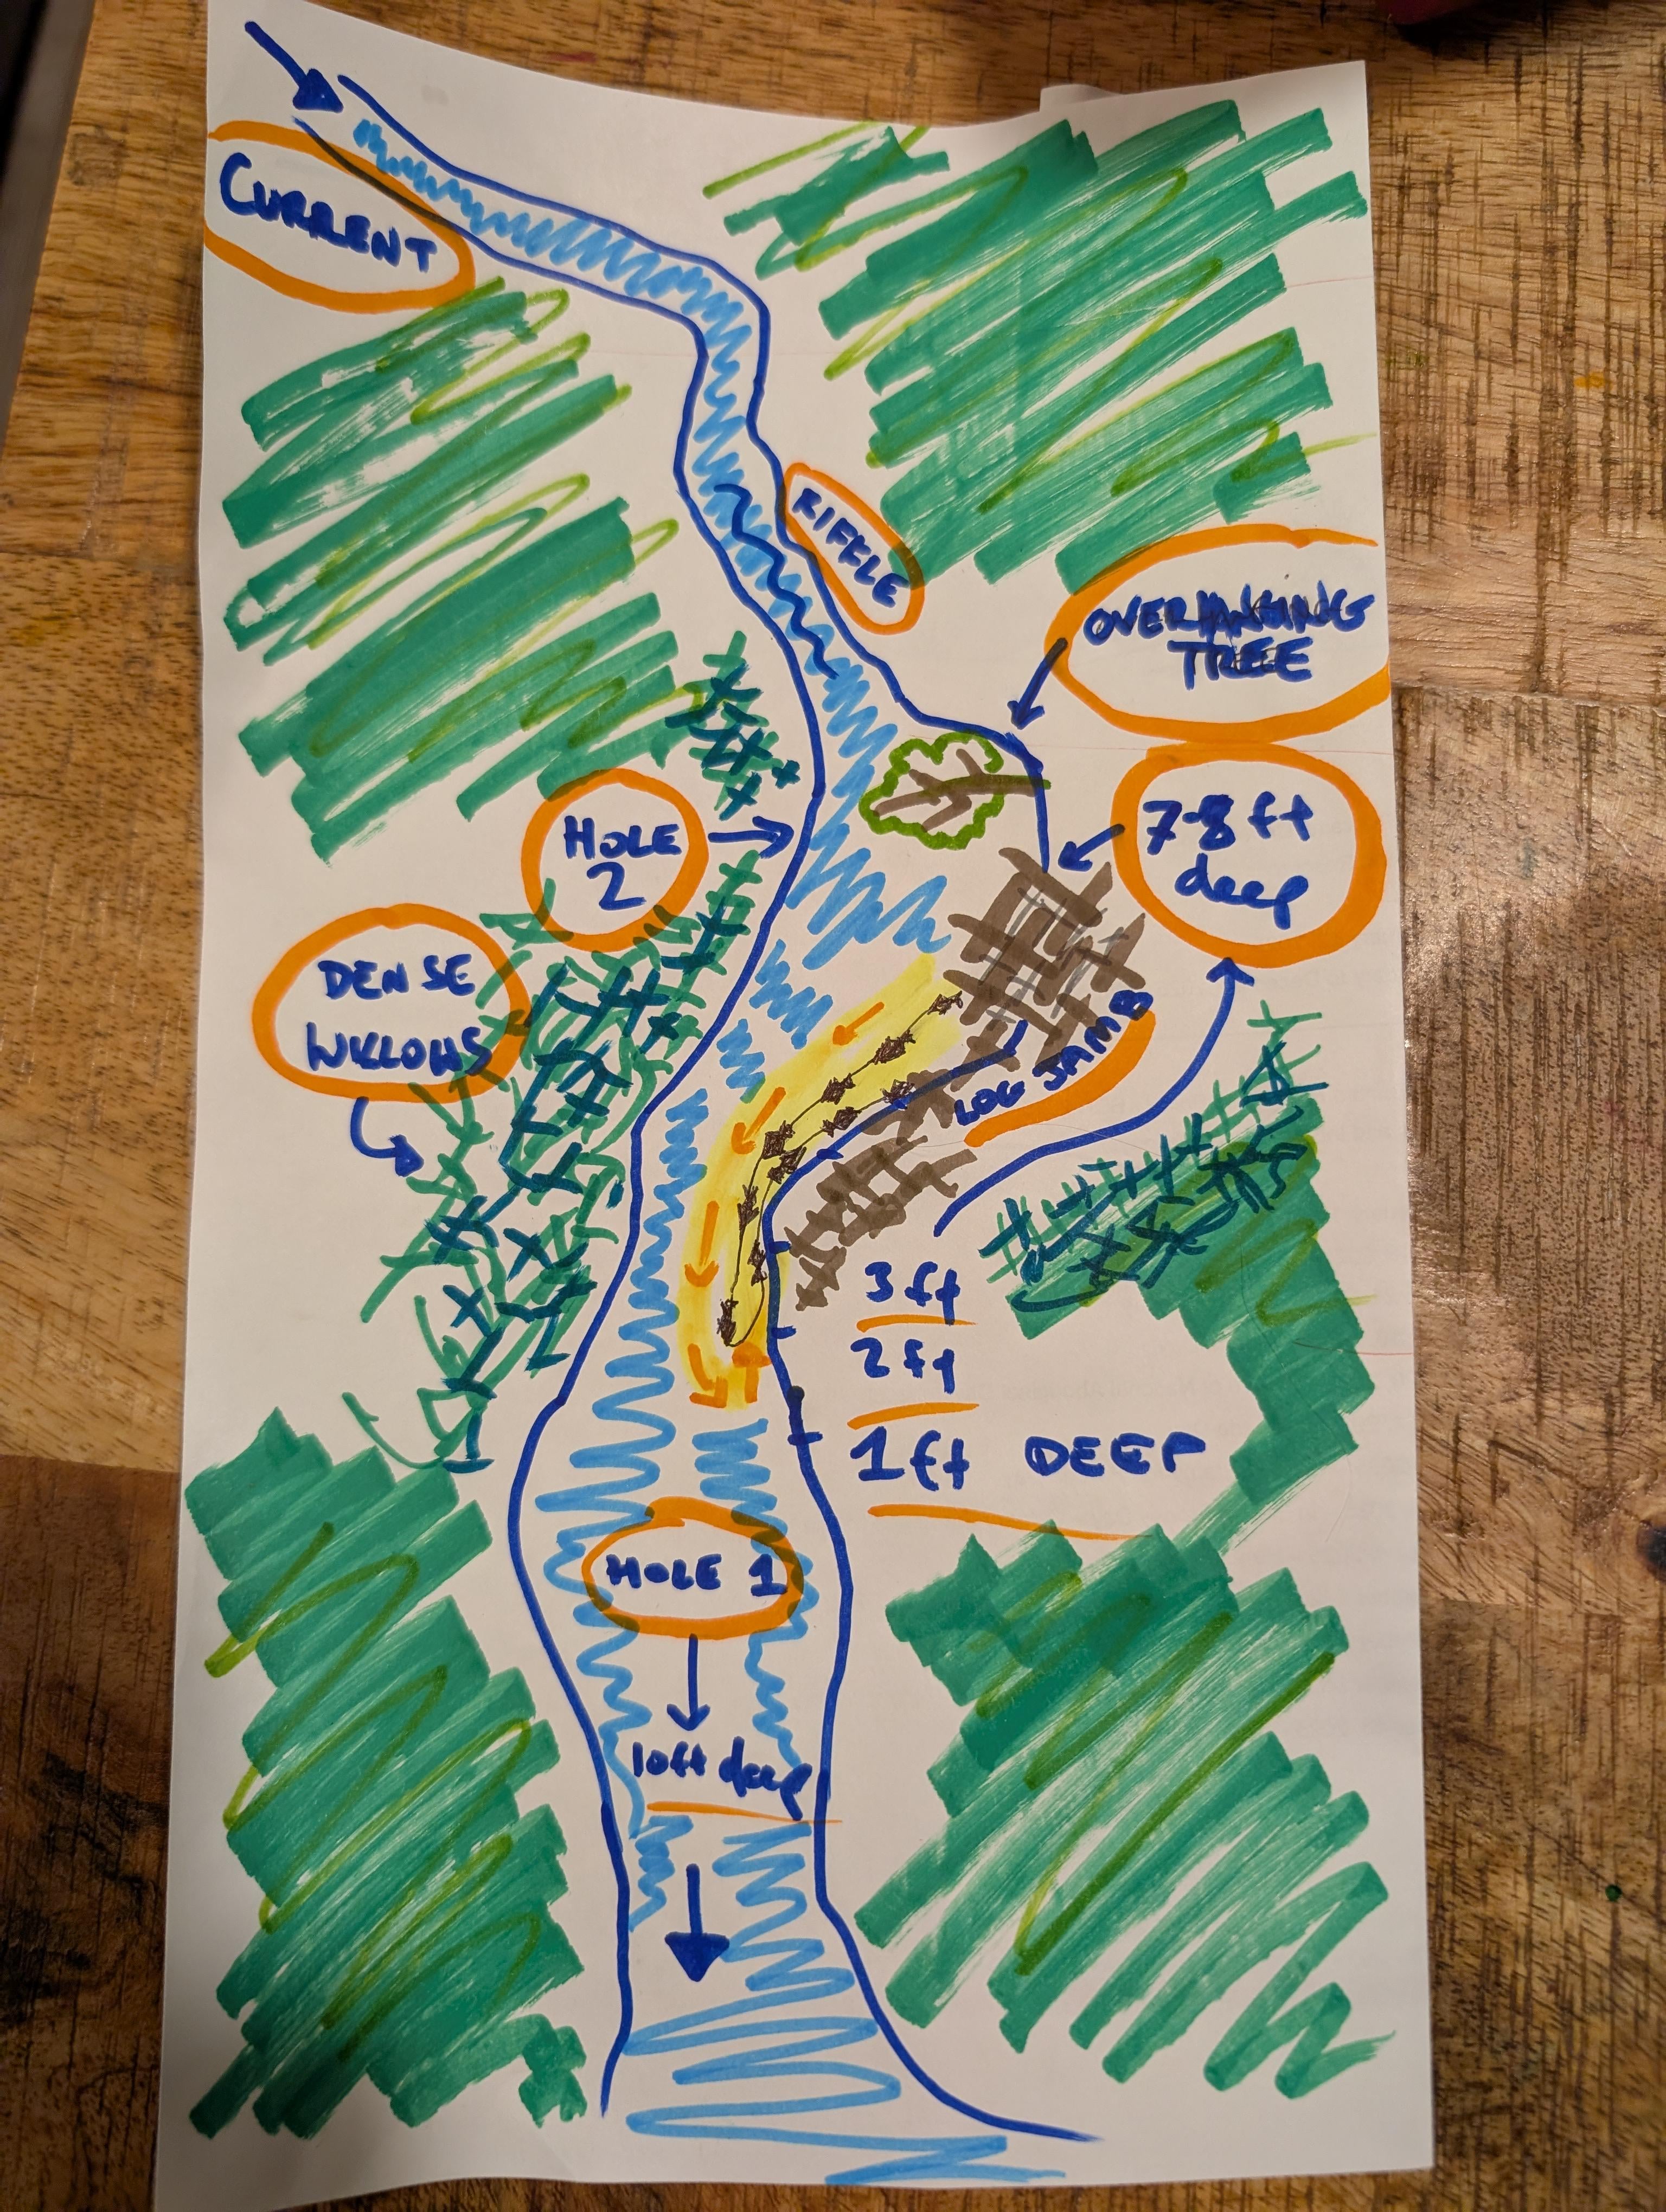 CURRENT
RIFFLE
OVERHANGING
TREE
HOLE
2
7-8 ft
deep
DENSE
WILLOWS
LOG JAMB
3 ft
2 ft
1 ft DEEP
HOLE 1
10ft deep